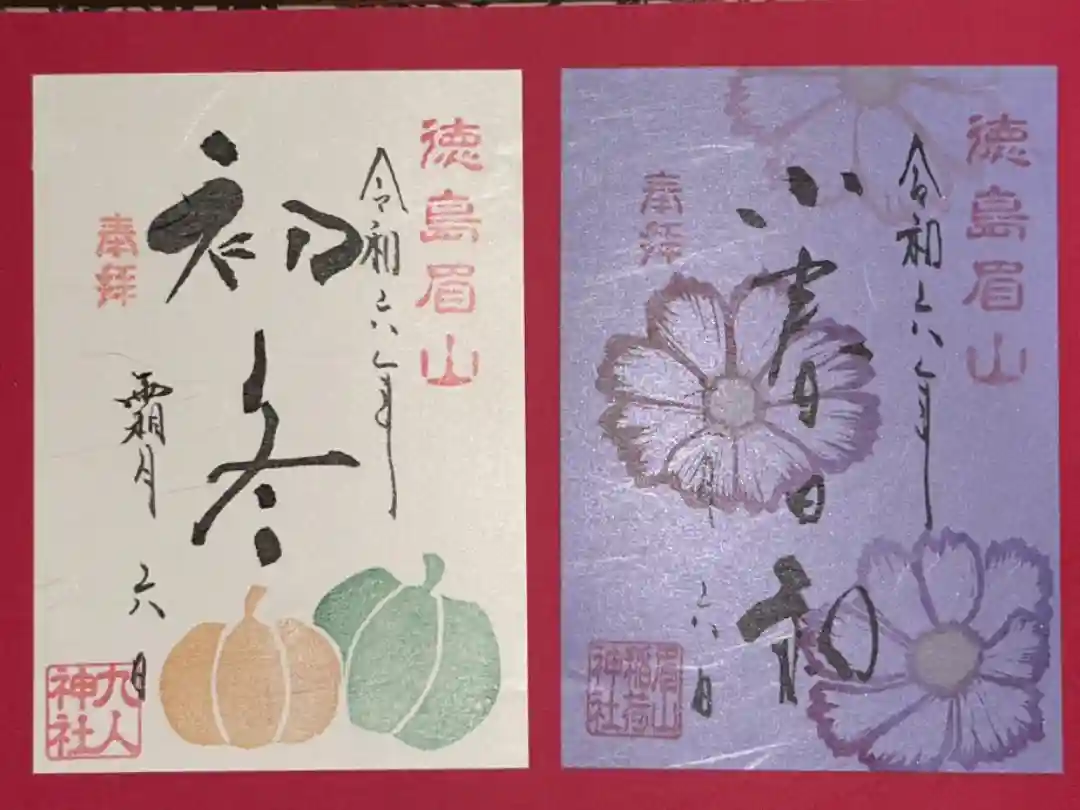 徳島眉山
令和六年
初冬
奉拝
霜月六日
九人神社
徳島眉山
令和六年
小春日和
奉拝
六日
眉山稲荷神社